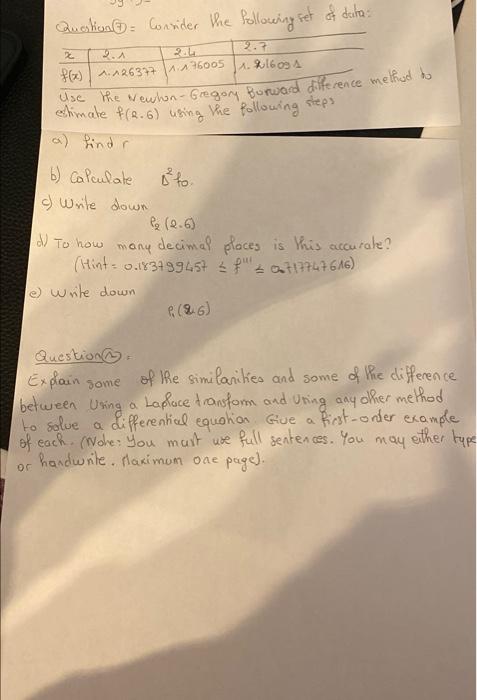 Question⑦= Consider the following set of data:
x 2.1 2.4 2.7
f(x) 1.126377 1.176005 1.216091
Use the Newton-Gregory Forward difference method to
estimate f(2.6) using the following steps
a) find r
b) Calculate Δ²f₀.
c) Write down
P₂(2.6)
d) To how many decimal places is this accurate?
(Hint= 0.183799457 ≤ f''' ≤ 0.717747616)
e) Write down
P₁(2.6)
Question②:
Explain some of the similarities and some of the difference
between Using a Laplace transform and Using any other method
to solve a differential equation. Give a first-order example
of each. (Note: You must use full sentences. You may either type
or handwrite. Maximum one page).